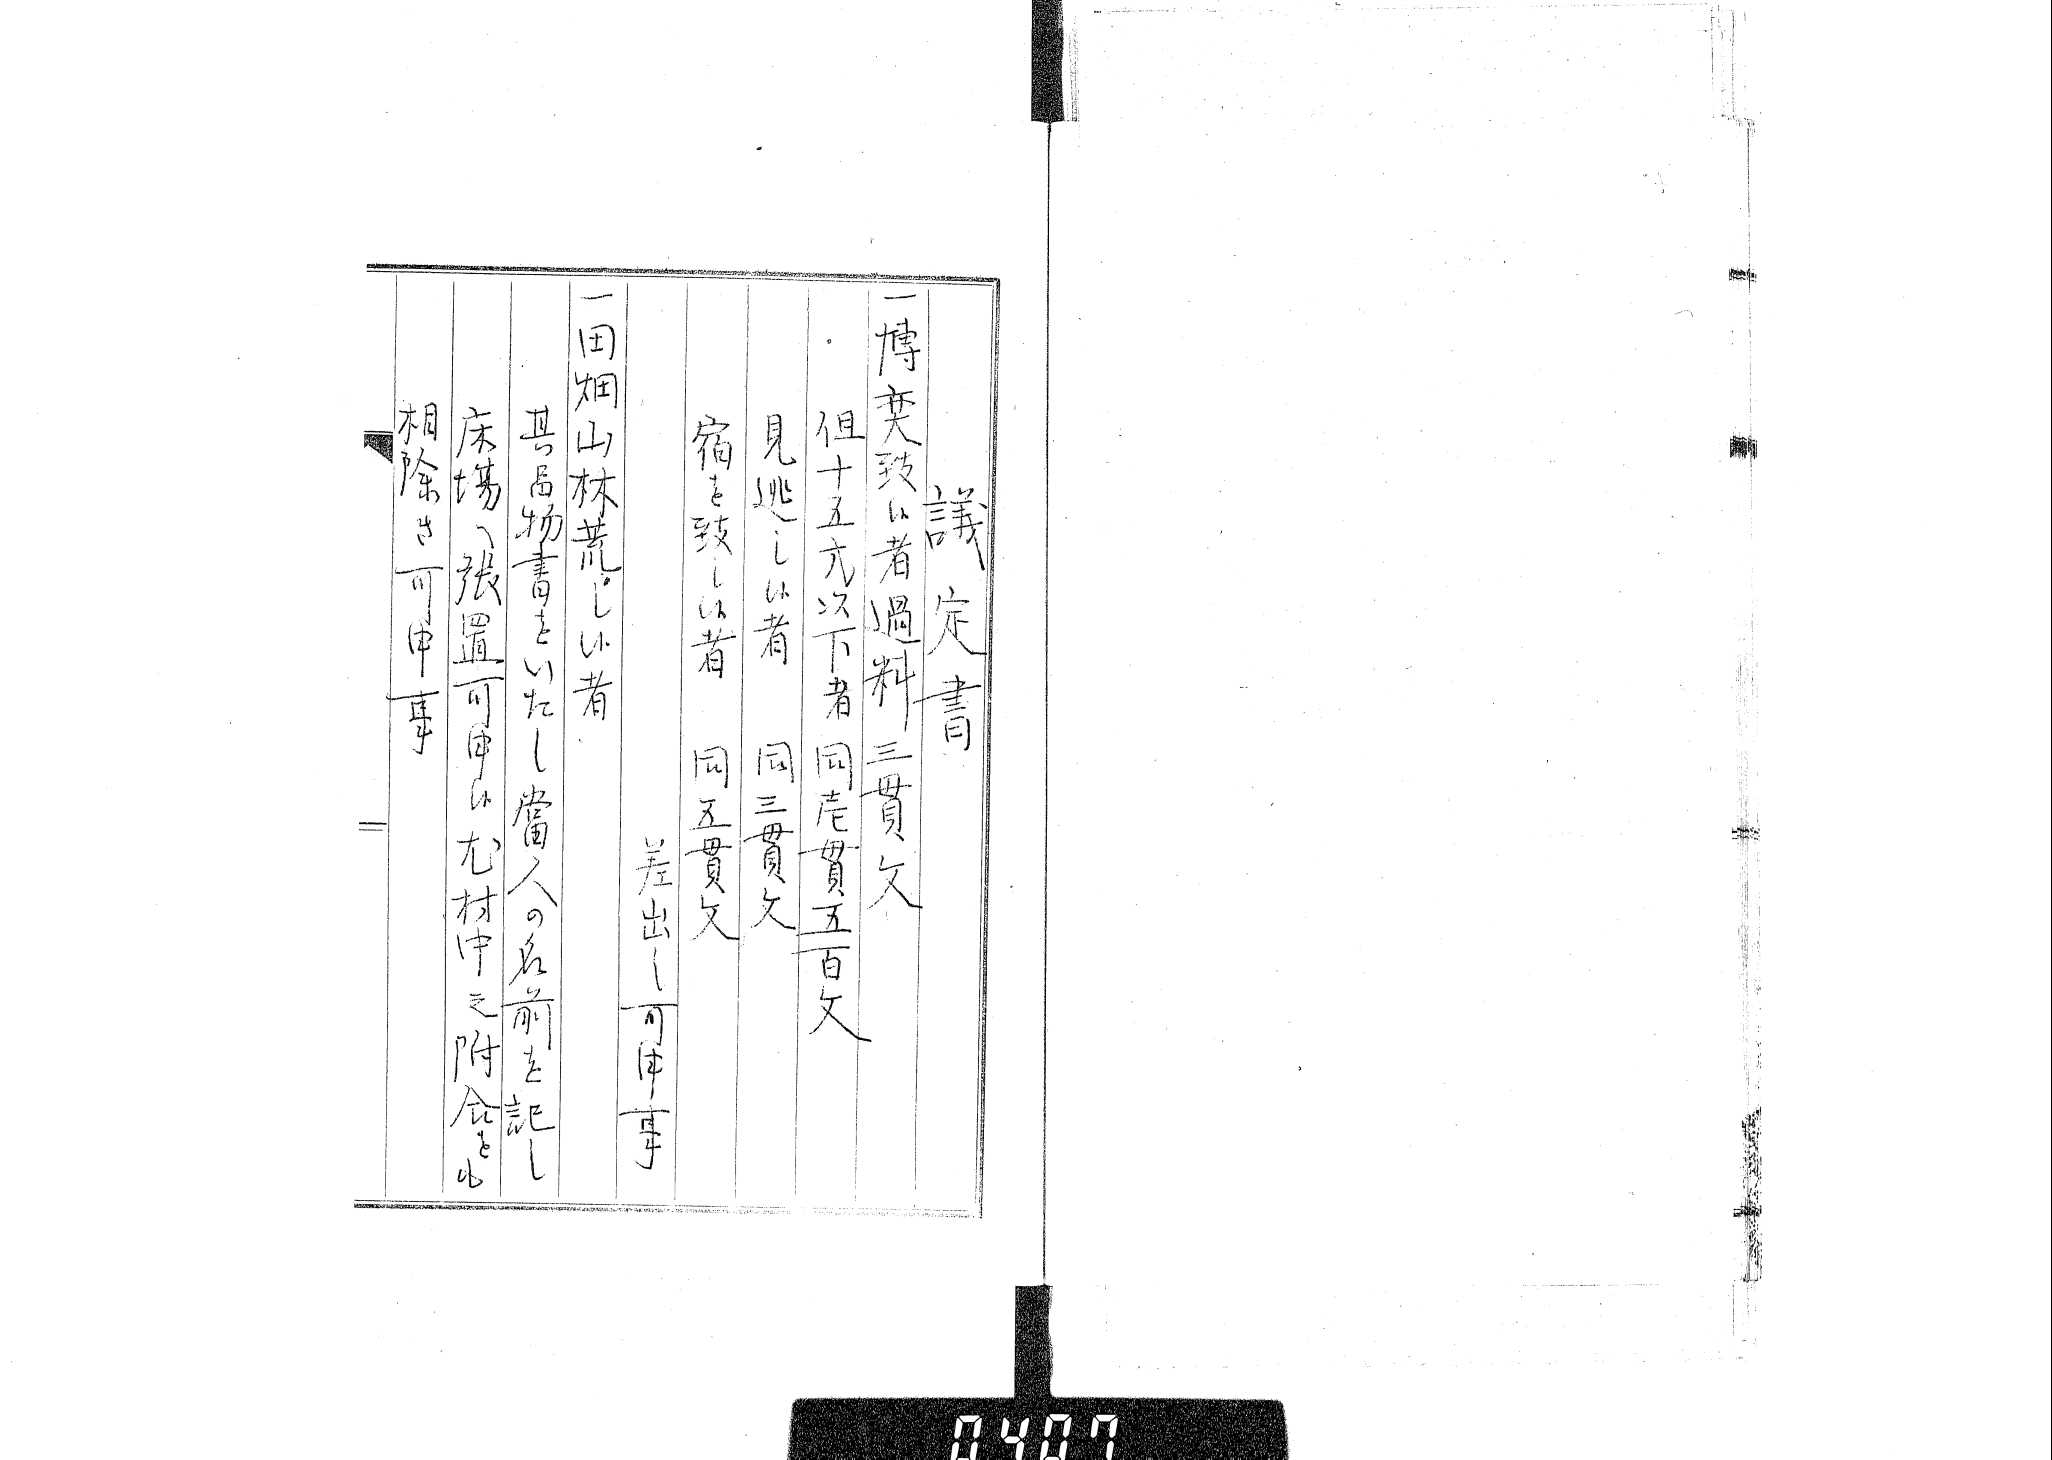 議定書
一博奕致候者過料三貫文
但十五才以下者同壱貫五百文
見逃し候者同三貫文
宿を致し候者同五貫文
差出し可申事
一田畑山林荒し候者
其品物書をいたし當人の名前を記し
床場へ張置可申候尤村中之附合を也
相除き可申事
0407